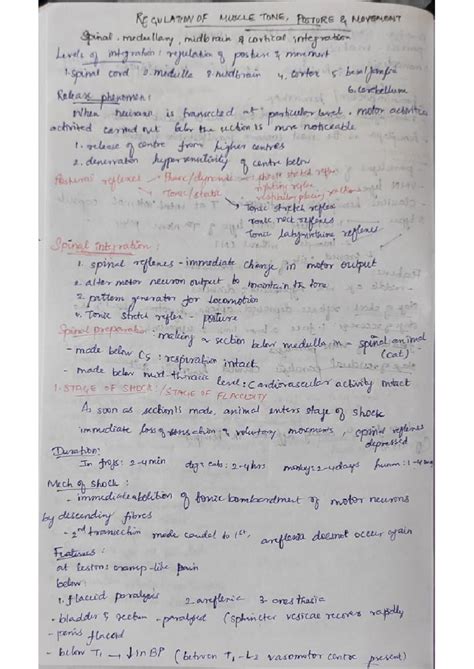 REGULATION OF MUSCLE TONE, POSTURE & MOVEMENT
Spinal, medullary, midbrain & cortical integration
Levels of integration: regulation of posture & movement
1. spinal cord 2. medulla 3. midbrain 4. cortex 5. basal ganglia
6. cerebellum
Release phenomen:
When neuraxis is transected at particular level, motor activities
activited carried out below the section is more noticeable
1. release of centre from higher centres
2. denervation hypersensitivity of centre below
Postural reflexes Phasic/dynamic short stretch reflex
righting reflex
vestibular placing reactions
Tonic/static
Tonic stretch reflex
Tonic neck reflexes
Tonic labyrinthine reflexes
Spinal integration:
1. spinal reflexes - immediate change in motor output
2. alter motor neuron output to maintain the tone
3. pattern generator for locomotion
4. Tonic stretch reflex - posture
Spinal preparation - making a section below medulla - spinal animal
(cat)
- made below C5: respiration intact
- made below mid thoracic level: Cardiovascular activity intact
1. STAGE OF SHOCK / STAGE OF FLACCIDITY
As soon as section is made, animal enters stage of shock
immediate loss of sensation & voluntary movements, spinal reflexes
depressed
Duration:
In frogs: 2-4min dogs cats: 2-4hrs monkey: 2-4days human: 1-4
Mech of shock:
- immediate abolition of tonic bombardment of motor neurons
by descending fibres
- 2nd transection made caudal to 1st, areflexia doesnot occur again
Features:
at lesion: cramp-like pain
below:
1. flaccid paralysis 2. areflexic 3. anesthesia
- bladder & rectum - paralysed (sphincter vesicae recovers rapidly)
- penis flaccid
- below T1 → ↓ in BP (between T1 - L2 vasomotor centre present)